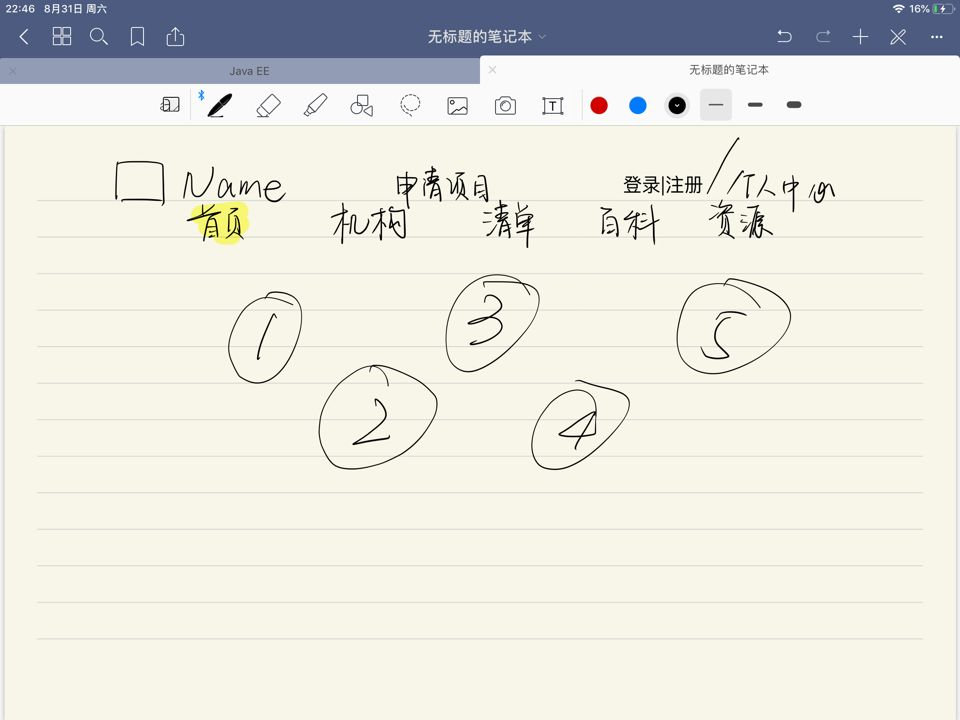 22:46 8月31日 周六 16%
无标题的笔记本
Java EE 无标题的笔记本
T
Name 申请项目 登录|注册 / 个人中心
首页 机构 清单 百科 资源
1 3 5
2 4